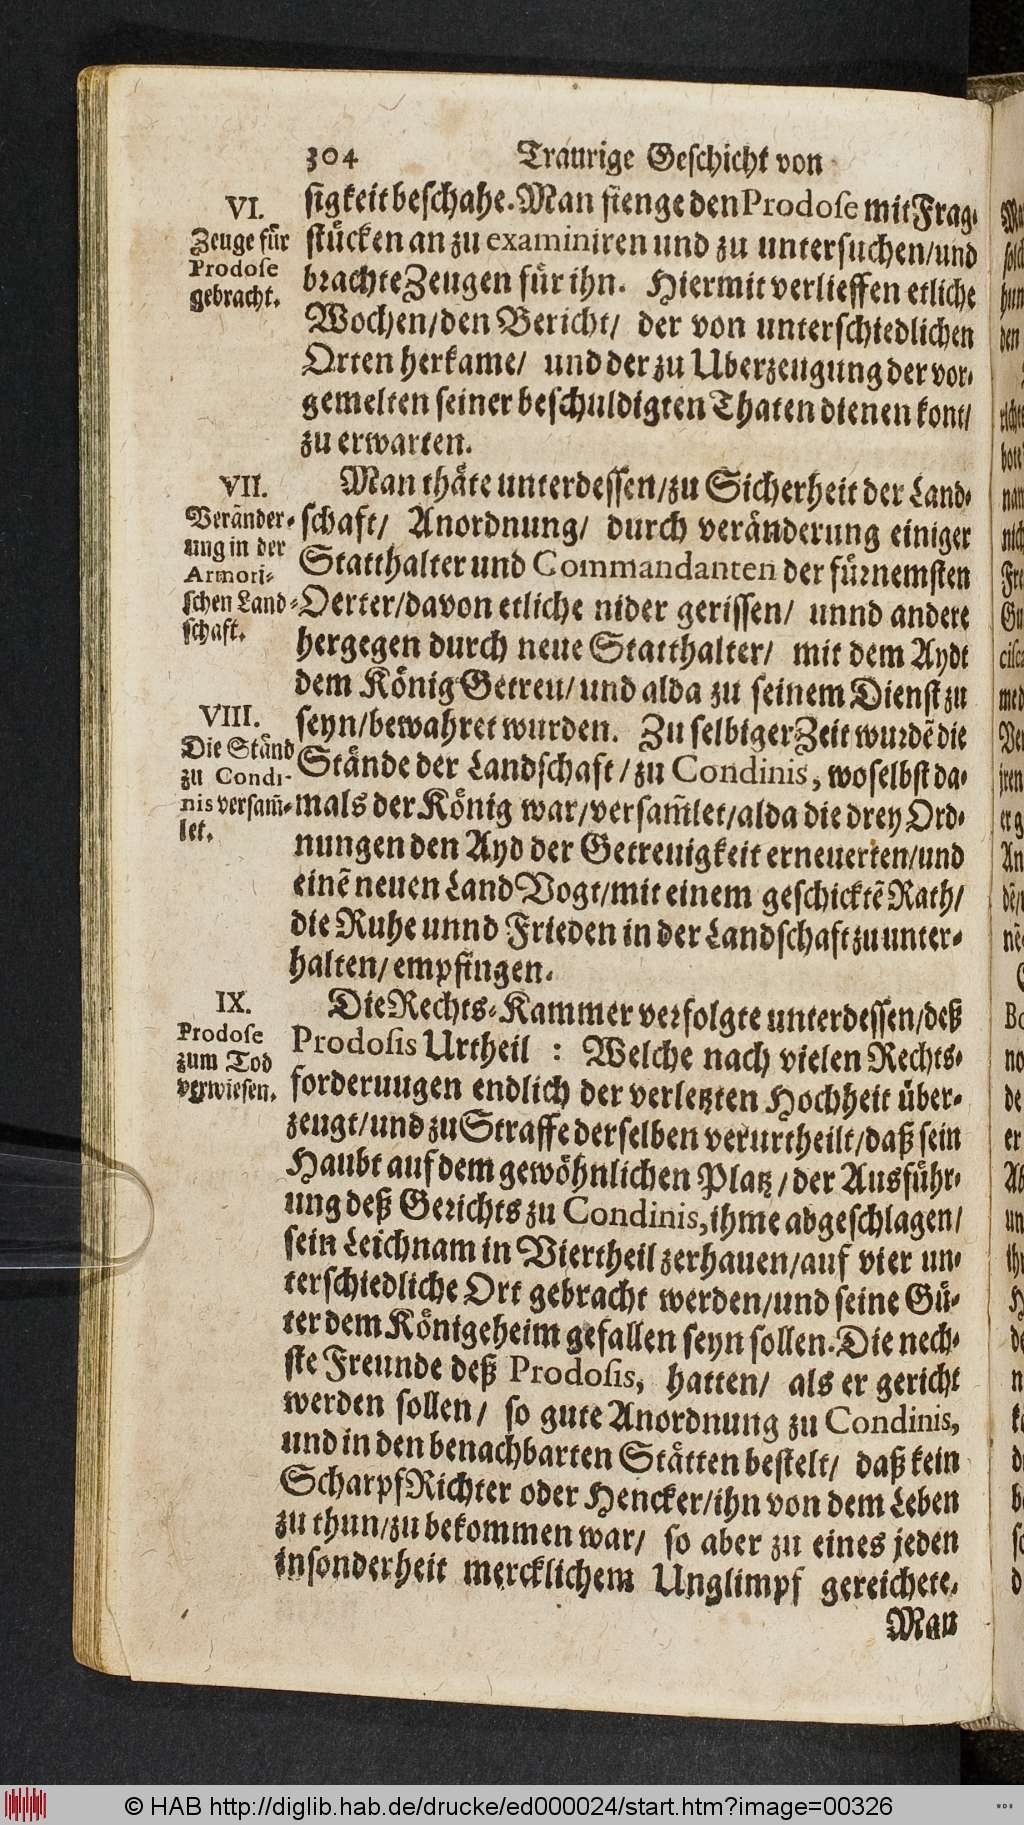 304 Traurige Geschicht von
VI.
Zeuge für
Prodose
gebracht.
sigkeit beschahe. Man fienge den Prodose mit Frag-
stücken an zu examiniren und zu untersuchen/und
brachte Zeugen für ihn. Hiermit verlieffen etliche
Wochen/den Bericht/ der von unterschiedlichen
Orten herkame/ und der zu Uberzeugung der vor-
gemelten seiner beschuldigten Thaten dienen kont/
zu erwarten.
VII.
Veränder-
ung in der
Armori-
schen Land-
schaft.
Man thäte unterdessen/zu Sicherheit der Land-
schaft/ Anordnung/ durch veränderung einiger
Statthalter und Commandanten der fürnemsten
Oerter/davon etliche nider gerissen/ unnd andere
hergegen durch neue Statthalter/ mit dem Aydt
dem König Getreu/und alda zu seinem Dienst zu
VIII.
Die Ständ
zu Condi-
nis versam̄-
let.
seyn/bewahret wurden. Zu selbiger Zeit wurdē die
Stände der Landschaft/zu Condinis, woselbst da-
mals der König war/versam̄let/alda die drey Ord-
nungen den Ayd der Getreuigkeit erneuerten/und
einē neuen Land Vogt/mit einem geschicktē Rath/
die Ruhe unnd Frieden in der Landschaft zu unter-
halten/empfingen.
IX.
Prodose
zum Tod
verwiesen.
Die Rechts-Kammer verfolgte unterdessen/deß
Prodosis Urtheil : Welche nach vielen Rechts-
forderuugen endlich der verletzten Hochheit über-
zeugt/und zu Straffe derselben verurtheilt/daß sein
Haubt auf dem gewöhnlichen Platz/der Ausführ-
ung deß Gerichts zu Condinis, ihme abgeschlagen/
sein Leichnam in Viertheil zerhauen/auf vier un-
terschiedliche Ort gebracht werden/und seine Gü-
ter dem König eheim gefallen seyn sollen. Die nech-
ste Freunde deß Prodosis, hatten/ als er gericht
werden sollen/ so gute Anordnung zu Condinis,
und in den benachbarten Stätten bestelt/ daß kein
Scharpf Richter oder Hencker/ihn von dem Leben
zu thun/zu bekommen war/ so aber zu eines jeden
insonderheit mercklichem Unglimpf gereichete.
Man
© HAB http://diglib.hab.de/drucke/ed000024/start.htm?image=00326